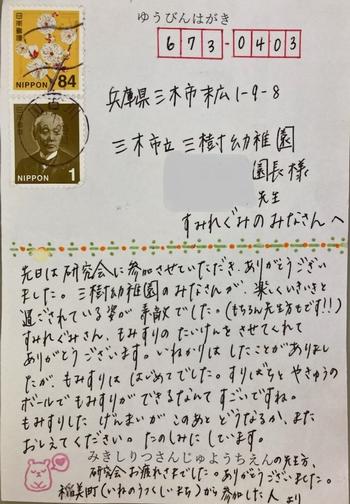 ゆうびんはがき
日本郵便
84
NIPPON
673-0403
兵庫県三木市末広1-9-8
日本郵便
三木市立 三樹幼稚園
園長様
1
NIPPON
先生
すみれぐみのみなさんへ
先日は研究会に参加させていただき、ありがとうござい
ました。三樹幼稚園のみなさんが、楽しくいきいきと
過ごされている姿が素敵でした。(もちろん先生方もです!!)
すみれぐみさん、もみすりのたいけんをさせてくれて
ありがとうございます。いねかりはしたことがありまし
たが、もみすりははじめてでした。すりばちとやきゅうの
ボールでもみすりができるなんてすごいですね。
もみすりしたげんまいがこのあとどうなるか、また
おしえてください。たのしみにしています。
みきしりつさんじゅようちえんの先生方、
研究会お疲れさまでした。ありがとうございました。
稲美町(いねのうつくしいまち)から参加した人より